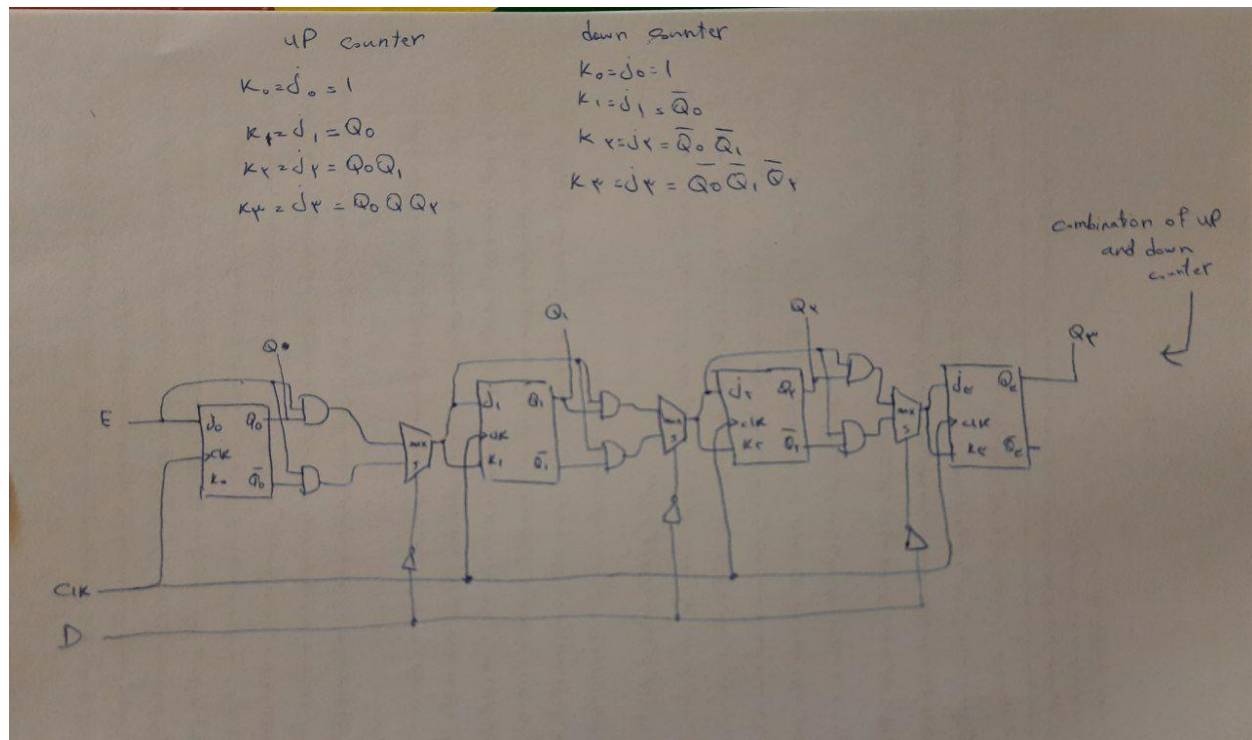 up counter
K₀=j₀=1
K₁=j₁=Q₀
K۲=j۲=Q₀Q₁
K۳=j۳=Q₀QQ۲
down counter
K₀=j₀=1
K₁=j₁=Q̅₀
K۲=j۲=Q̅₀Q̅₁
K۳=j۳=Q̅₀Q̅₁Q̅۲
combination of up
and down
counter
Q۰
Q₁
Q۲
Q۳
E
j₀ Q₀
CLK
K₀ Q̅₀
mux
s
j₁ Q₁
CLK
K₁ Q̅₁
mux
s
j۲ Q۲
CLK
K۲ Q̅۲
mux
s
j۳ Q۳
CLK
K۳ Q̅۳
CLK
D